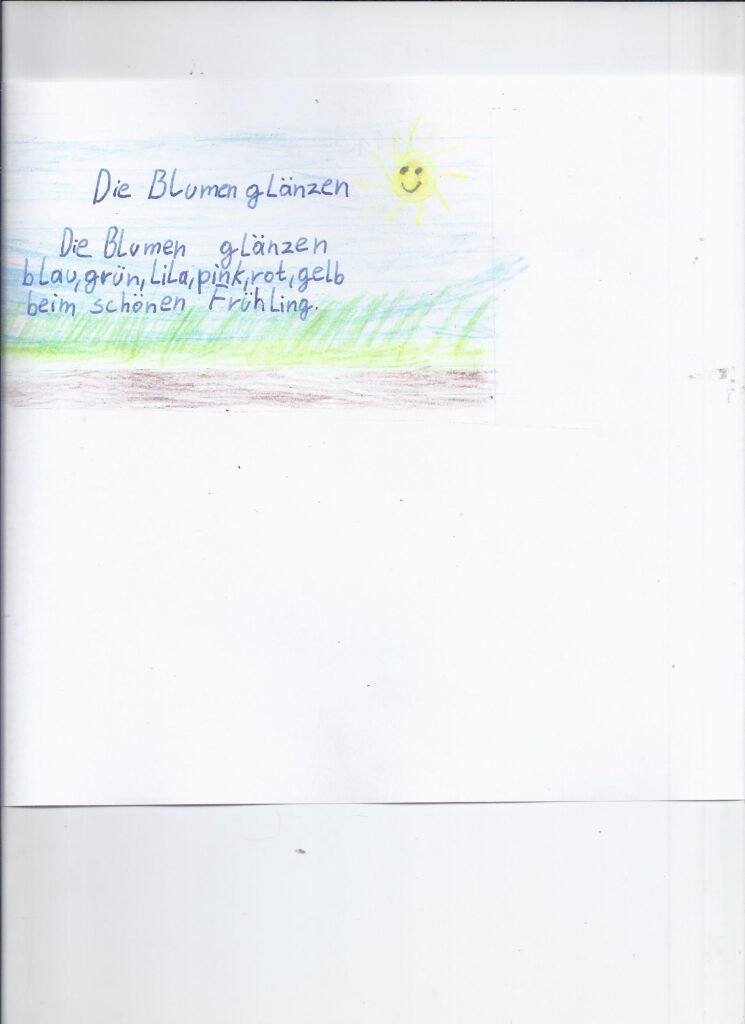 Die Blumen glänzen
Die Blumen glänzen
blau, grün, lila, pink, rot, gelb
beim schönen Frühling.